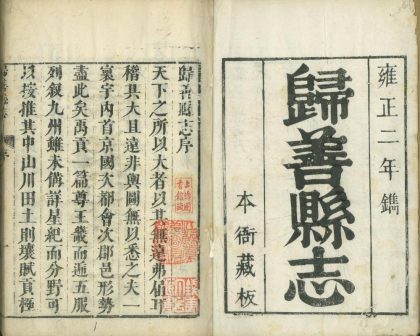 雍正二年鐫
歸善縣志
本衙藏板
歸善縣志序
天下之所以大者以其無遠弗届耳
稽其大且遠非輿圖無以悉之夫一
寰宇內首京國次都會次郡邑形勢
盡此矣禹貢一篇尊王畿而通五服
列叙九州雖未備詳星紀而分野可
以按推其中山川田土則壤賦貢極